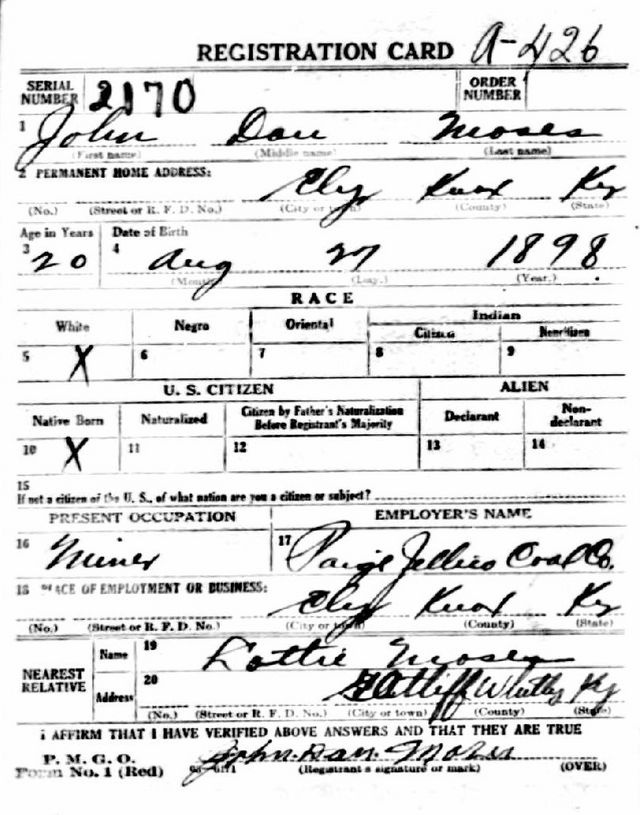 REGISTRATION CARD A-426
SERIAL NUMBER 2170 ORDER NUMBER
1 John Dan Moses
(First name) (Middle name) (Last name)
2 PERMANENT HOME ADDRESS:
Ely Knox Ky
(No.) (Street or R. F. D. No.) (City or town) (County) (State)
Age in Years Date of Birth
3 20 4 Aug 27 1898
(Month) (Day.) (Year.)
RACE
White Negro Oriental Indian
Citizen Noncitizen
5 X 6 7 8 9
U. S. CITIZEN ALIEN
Native Born Naturalized Citizen by Father's Naturalization Before Registrant's Majority Declarant Non-declarant
10 X 11 12 13 14
15
If not a citizen of the U. S., of what nation are you a citizen or subject?
PRESENT OCCUPATION EMPLOYER'S NAME
16 Miner 17 Paige Jellico Coal Co.
18 PLACE OF EMPLOYMENT OR BUSINESS:
Ely Knox Ky
(No.) (Street or R. F. D. No.) (City or town) (County) (State)
NEAREST RELATIVE
Name 19 Lottie Moses
Address 20 Gatliff Whitley Ky
(No.) (Street or R. F. D. No.) (City or town) (County) (State)
I AFFIRM THAT I HAVE VERIFIED ABOVE ANSWERS AND THAT THEY ARE TRUE
P. M. G. O.
Form No. 1 (Red) John Dan Moses
(Registrant's signature or mark) (OVER)